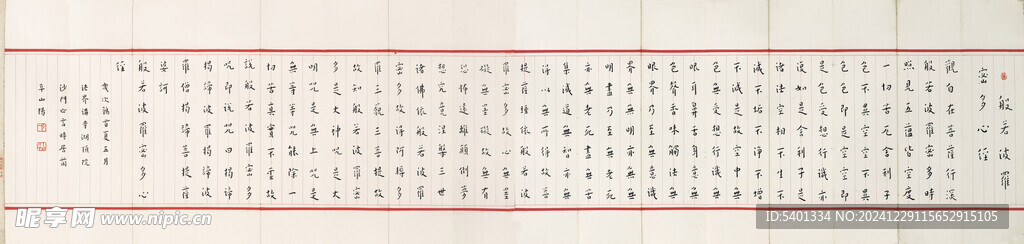 般若波羅
蜜多心經
觀自在菩薩行深
般若波羅蜜多時
照見五蘊皆空度
一切苦厄舍利子
色不異空空不異
色色即是空空即
是色受想行識亦
復如是舍利子是
諸法空相不生不
滅不垢不淨不增
不減是故空中無
色無受想行識無
眼耳鼻舌身意無
色聲香味觸法無
眼界乃至無意識
界無無明亦無
無明盡乃至無老死
亦無老死盡無苦
集滅道無智亦無
得以無所得故菩
提薩埵依般若波
羅蜜多故心無罣
礙無罣礙故無有
恐怖遠離顛倒夢
想究竟涅槃三世
諸佛依般若波羅
蜜多故得阿耨多
羅三藐三菩提
故知般若波羅蜜
多是大神咒是大
明咒是無上咒是
無等等咒能除一
切苦真實不虛故
說般若波羅蜜多
咒即說咒曰揭諦
揭諦波羅揭諦波
羅僧揭諦菩提薩
婆訶
般若波羅蜜多心
經
夏五月
沙門
昵享网
www.nipic.cn
ID:5401334 NO:20241229115652915105